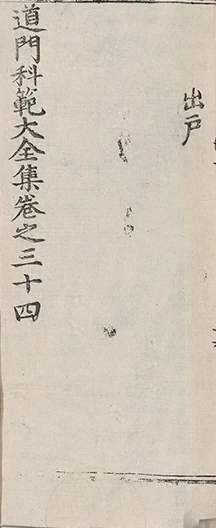 出戶
道門科範大全集卷之三十四